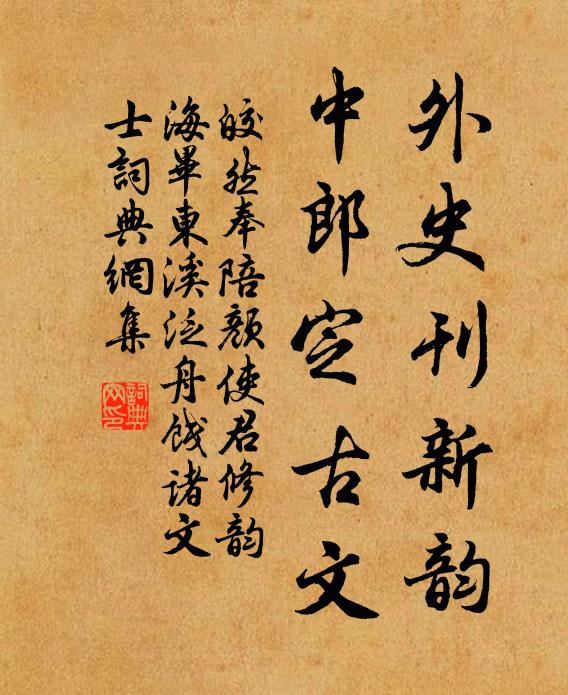 外史刊新韵
中郎定古文
皎然奉陪颜使君修韵
海畢東溪泛舟餞诸文
士詞典網集
詞典网印